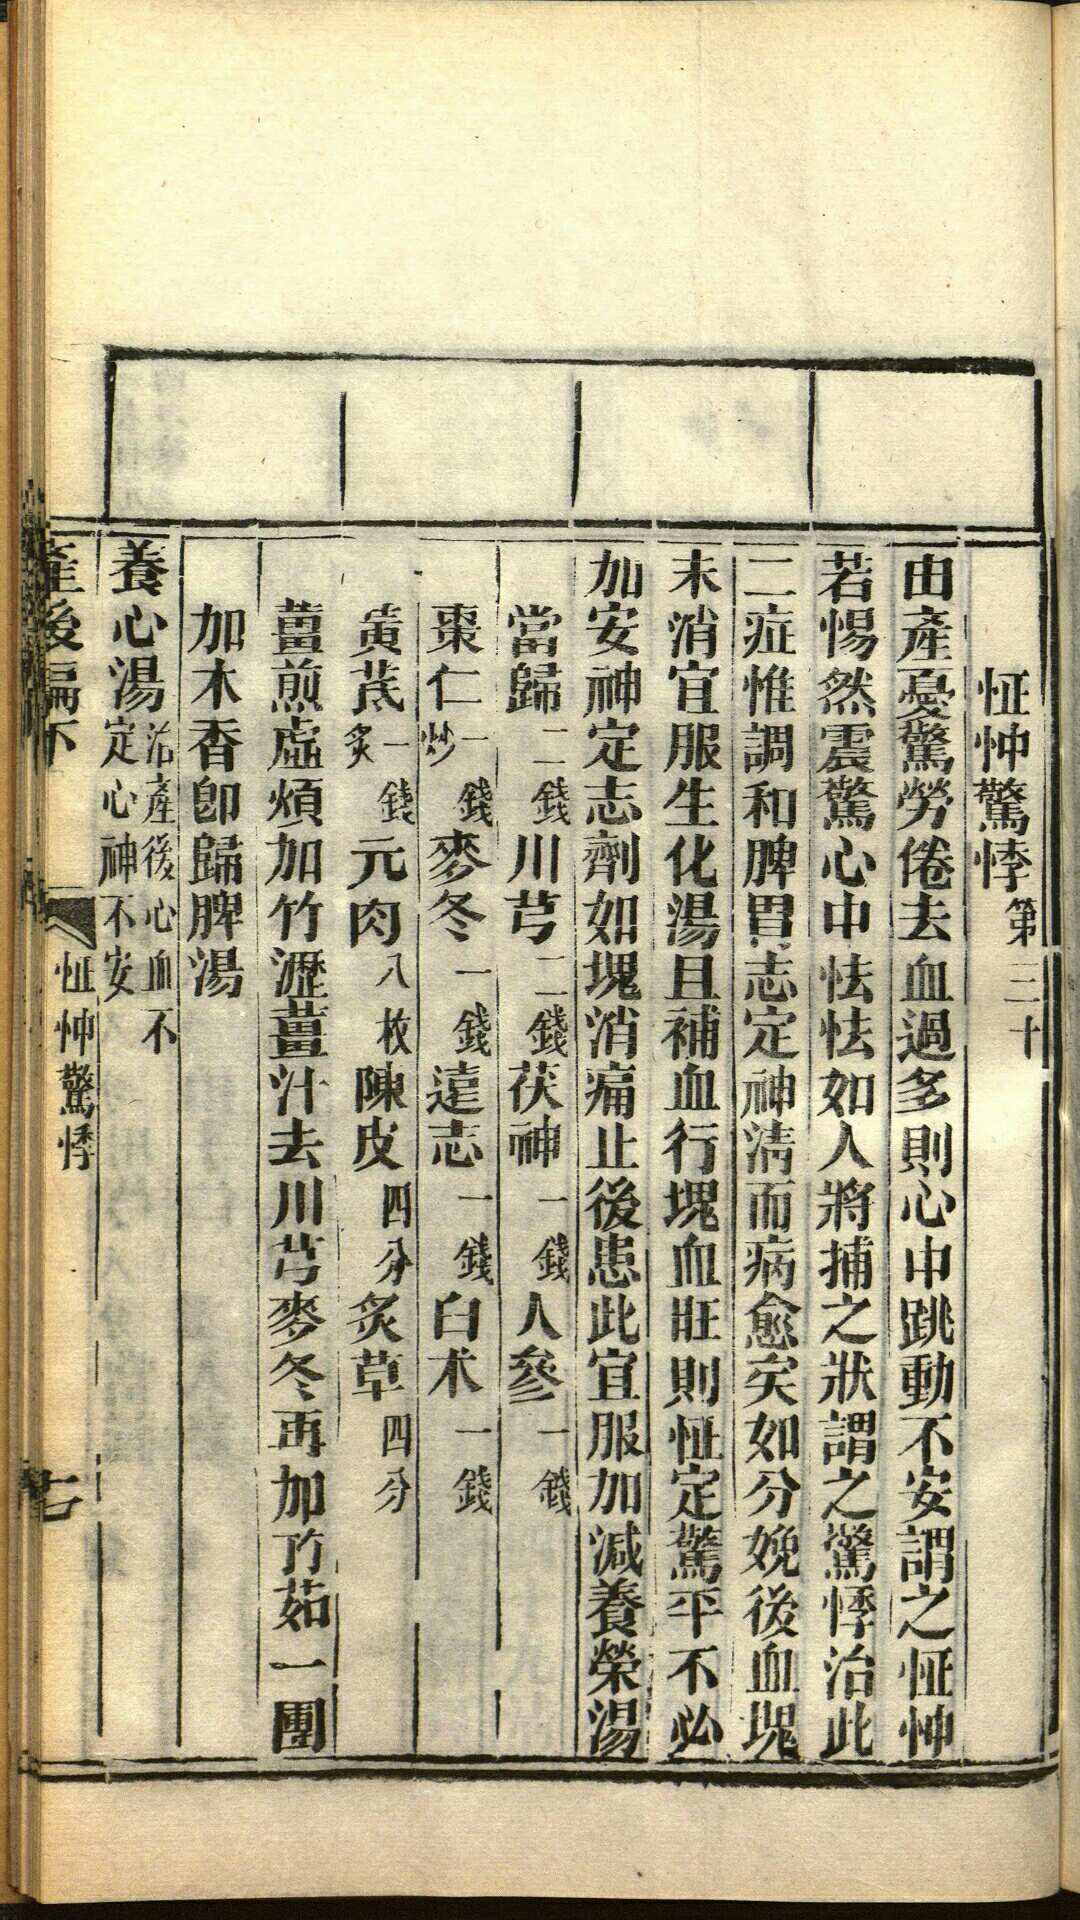 怔忡驚悸第三十
由產憂驚勞倦去血過多則心中跳動不安謂之怔忡
若惕然震驚心中怯怯如人將捕之狀謂之驚悸治此
二症惟調和脾胃志定神淸而病愈矣如分娩後血塊
未消宜服生化湯且補血行塊血旺則怔定驚平不必
加安神定志劑如塊消痛止後患此宜服加減養榮湯
當歸二錢川芎二錢茯神一錢人參一錢
棗仁炒一錢麥冬一錢遠志一錢白术一錢
黃芪炙一錢元肉八枚陳皮四分炙草四分
薑煎虛煩加竹瀝薑汁去川芎麥冬再加竹茹一團
加木香卽歸脾湯
養心湯治產後心血不定心神不安
產後編下 怔忡驚悸 七